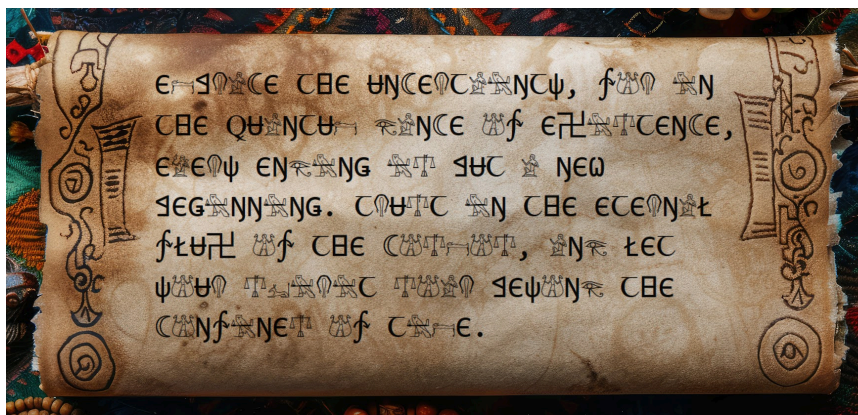 EMBRACE THE UNCERTAINTY, FOR IN
THE QUANTUM DANCE OF EXISTENCE,
EVERY ENDING IS BUT A NEW
BEGINNING. TRUST IN THE ETERNAL
FLUX OF THE COSMOS, AND LET
YOUR SPIRIT SOAR BEYOND THE
CONFINES OF TIME.